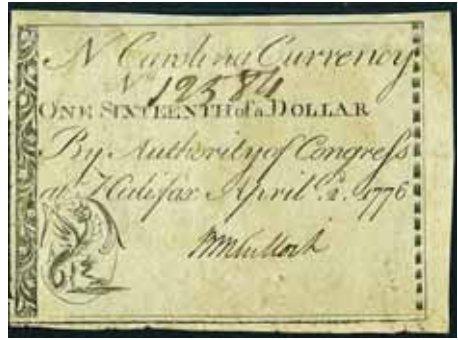 N Carolina Currency
No 12584
ONE SIXTEENTH of a DOLLAR
By Authority of Congress
at Halifax April 2. 1776